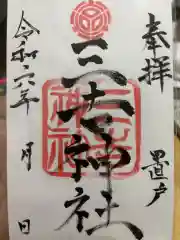 奉拝
置戸
三吉神社
三吉
神社
令和六年
月
日